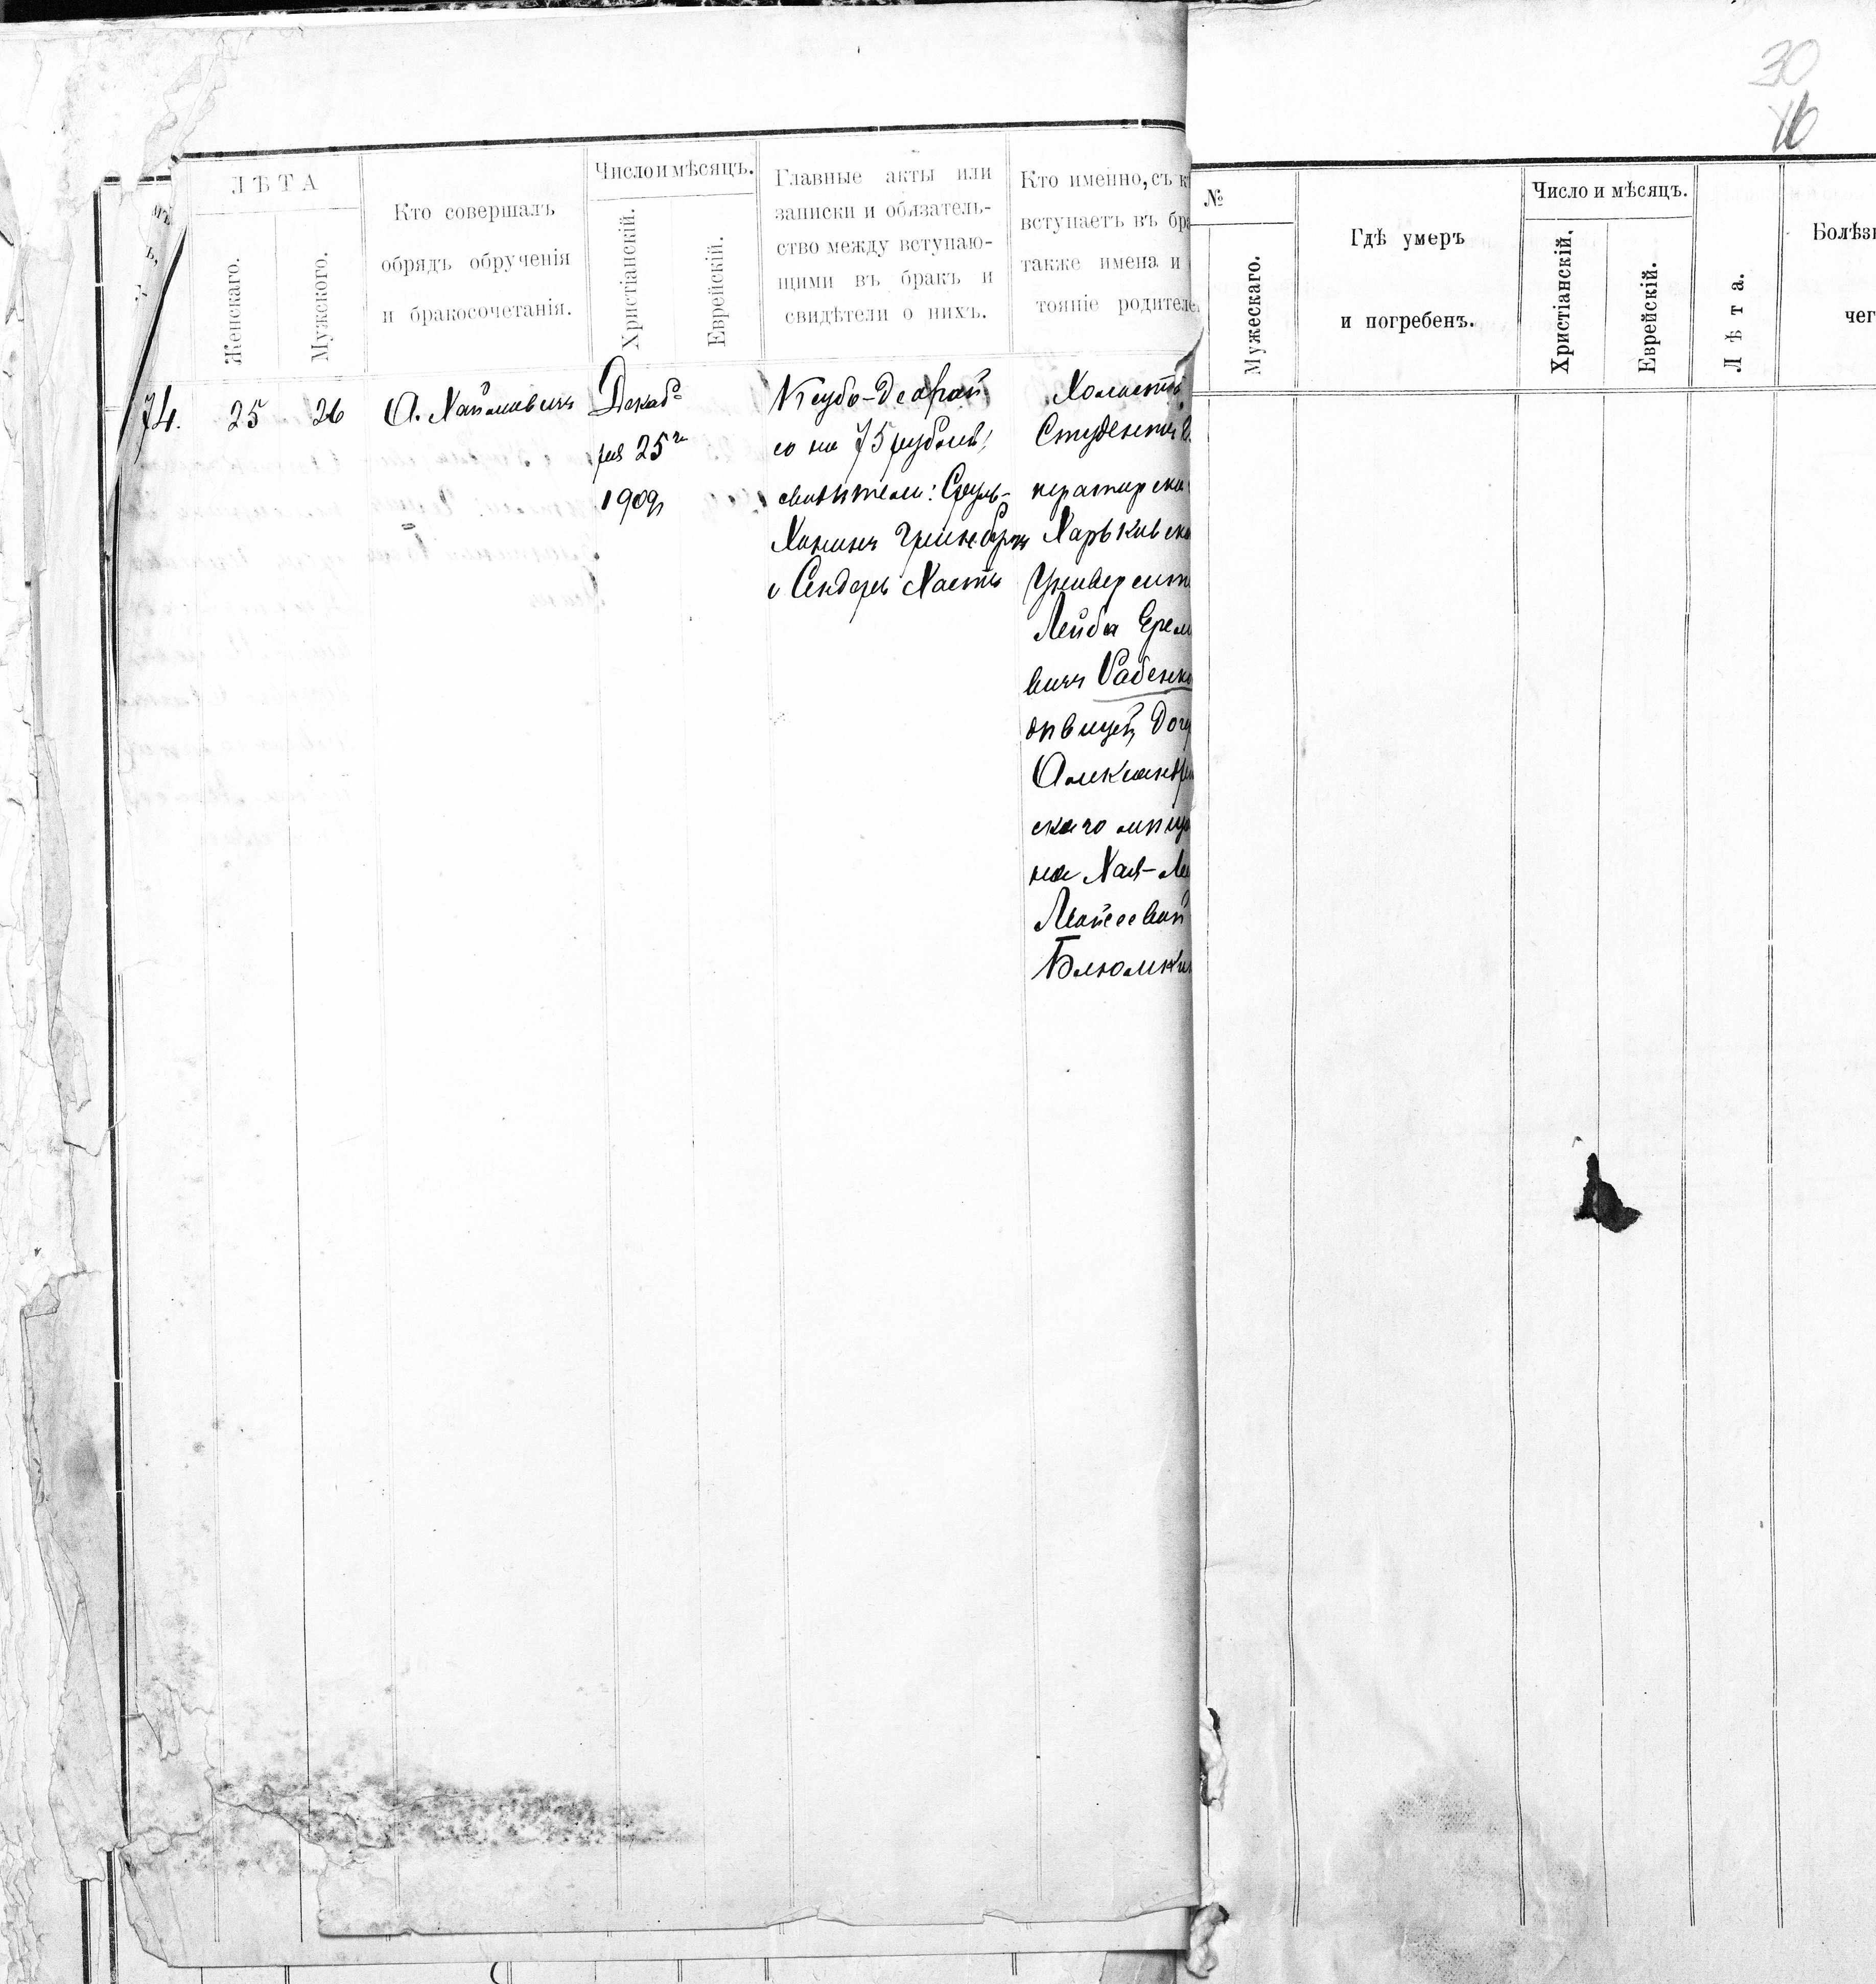 30
16
ЛѢТА
Женскаго.
Мужского.
Кто совершалъ
обрядъ обрученія
и бракосочетанія.
Число и мѣсяцъ.
Христіанскій.
Еврейскій.
Главные акты или
записки и обязатель-
ство между вступаю-
щими въ бракъ и
свидѣтели о нихъ.
Кто именно, съ к
вступаетъ въ бра
также имена и
тояніе родителе
74.
25
26
О. Хаймовичъ
Декаб-
ря 25го
1909г
Ктубо-Деорай
со на 75 рублей,
свидѣтели: Сруль-
Ханинъ Гринбергъ
и Сендеръ Хаетъ
Холостой
Студентъ
ператорска
Харьковска
Университе
Лейба Ерем
вичъ Рабенко
дѣвицей, доч
Александрій
скаго мѣща
на Хая-Ле
Мойсеевой
Блюмкин
№
Мужескаго.
Гдѣ умеръ
и погребенъ.
Число и мѣсяцъ.
Христіанскій.
Еврейскій.
Лѣта.
Болѣзн
чег